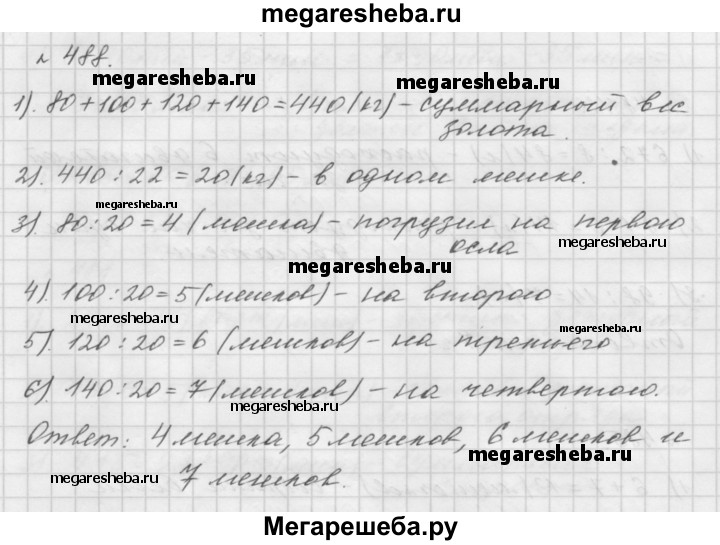 megaresheba.ru
№ 488.
megaresheba.ru
megaresheba.ru
1). 80+100+120+140=440(кг)-суммарный вес
золота.
2). 440:22=20(кг)-в одном мешке.
megaresheba.ru
3). 80:20=4(мешка)-погрузил на первого
осла
megaresheba.ru
megaresheba.ru
4). 100:20=5(мешков)-на второго
megaresheba.ru
megaresheba.ru
5). 120:20=6(мешков)-на третьего
6). 140:20=7(мешков)-на четвертого.
megaresheba.ru
Ответ: 4 мешка, 5 мешков, 6 мешков и
megaresheba.ru
7 мешков.
megaresheba.ru
Мегарешеба.ру